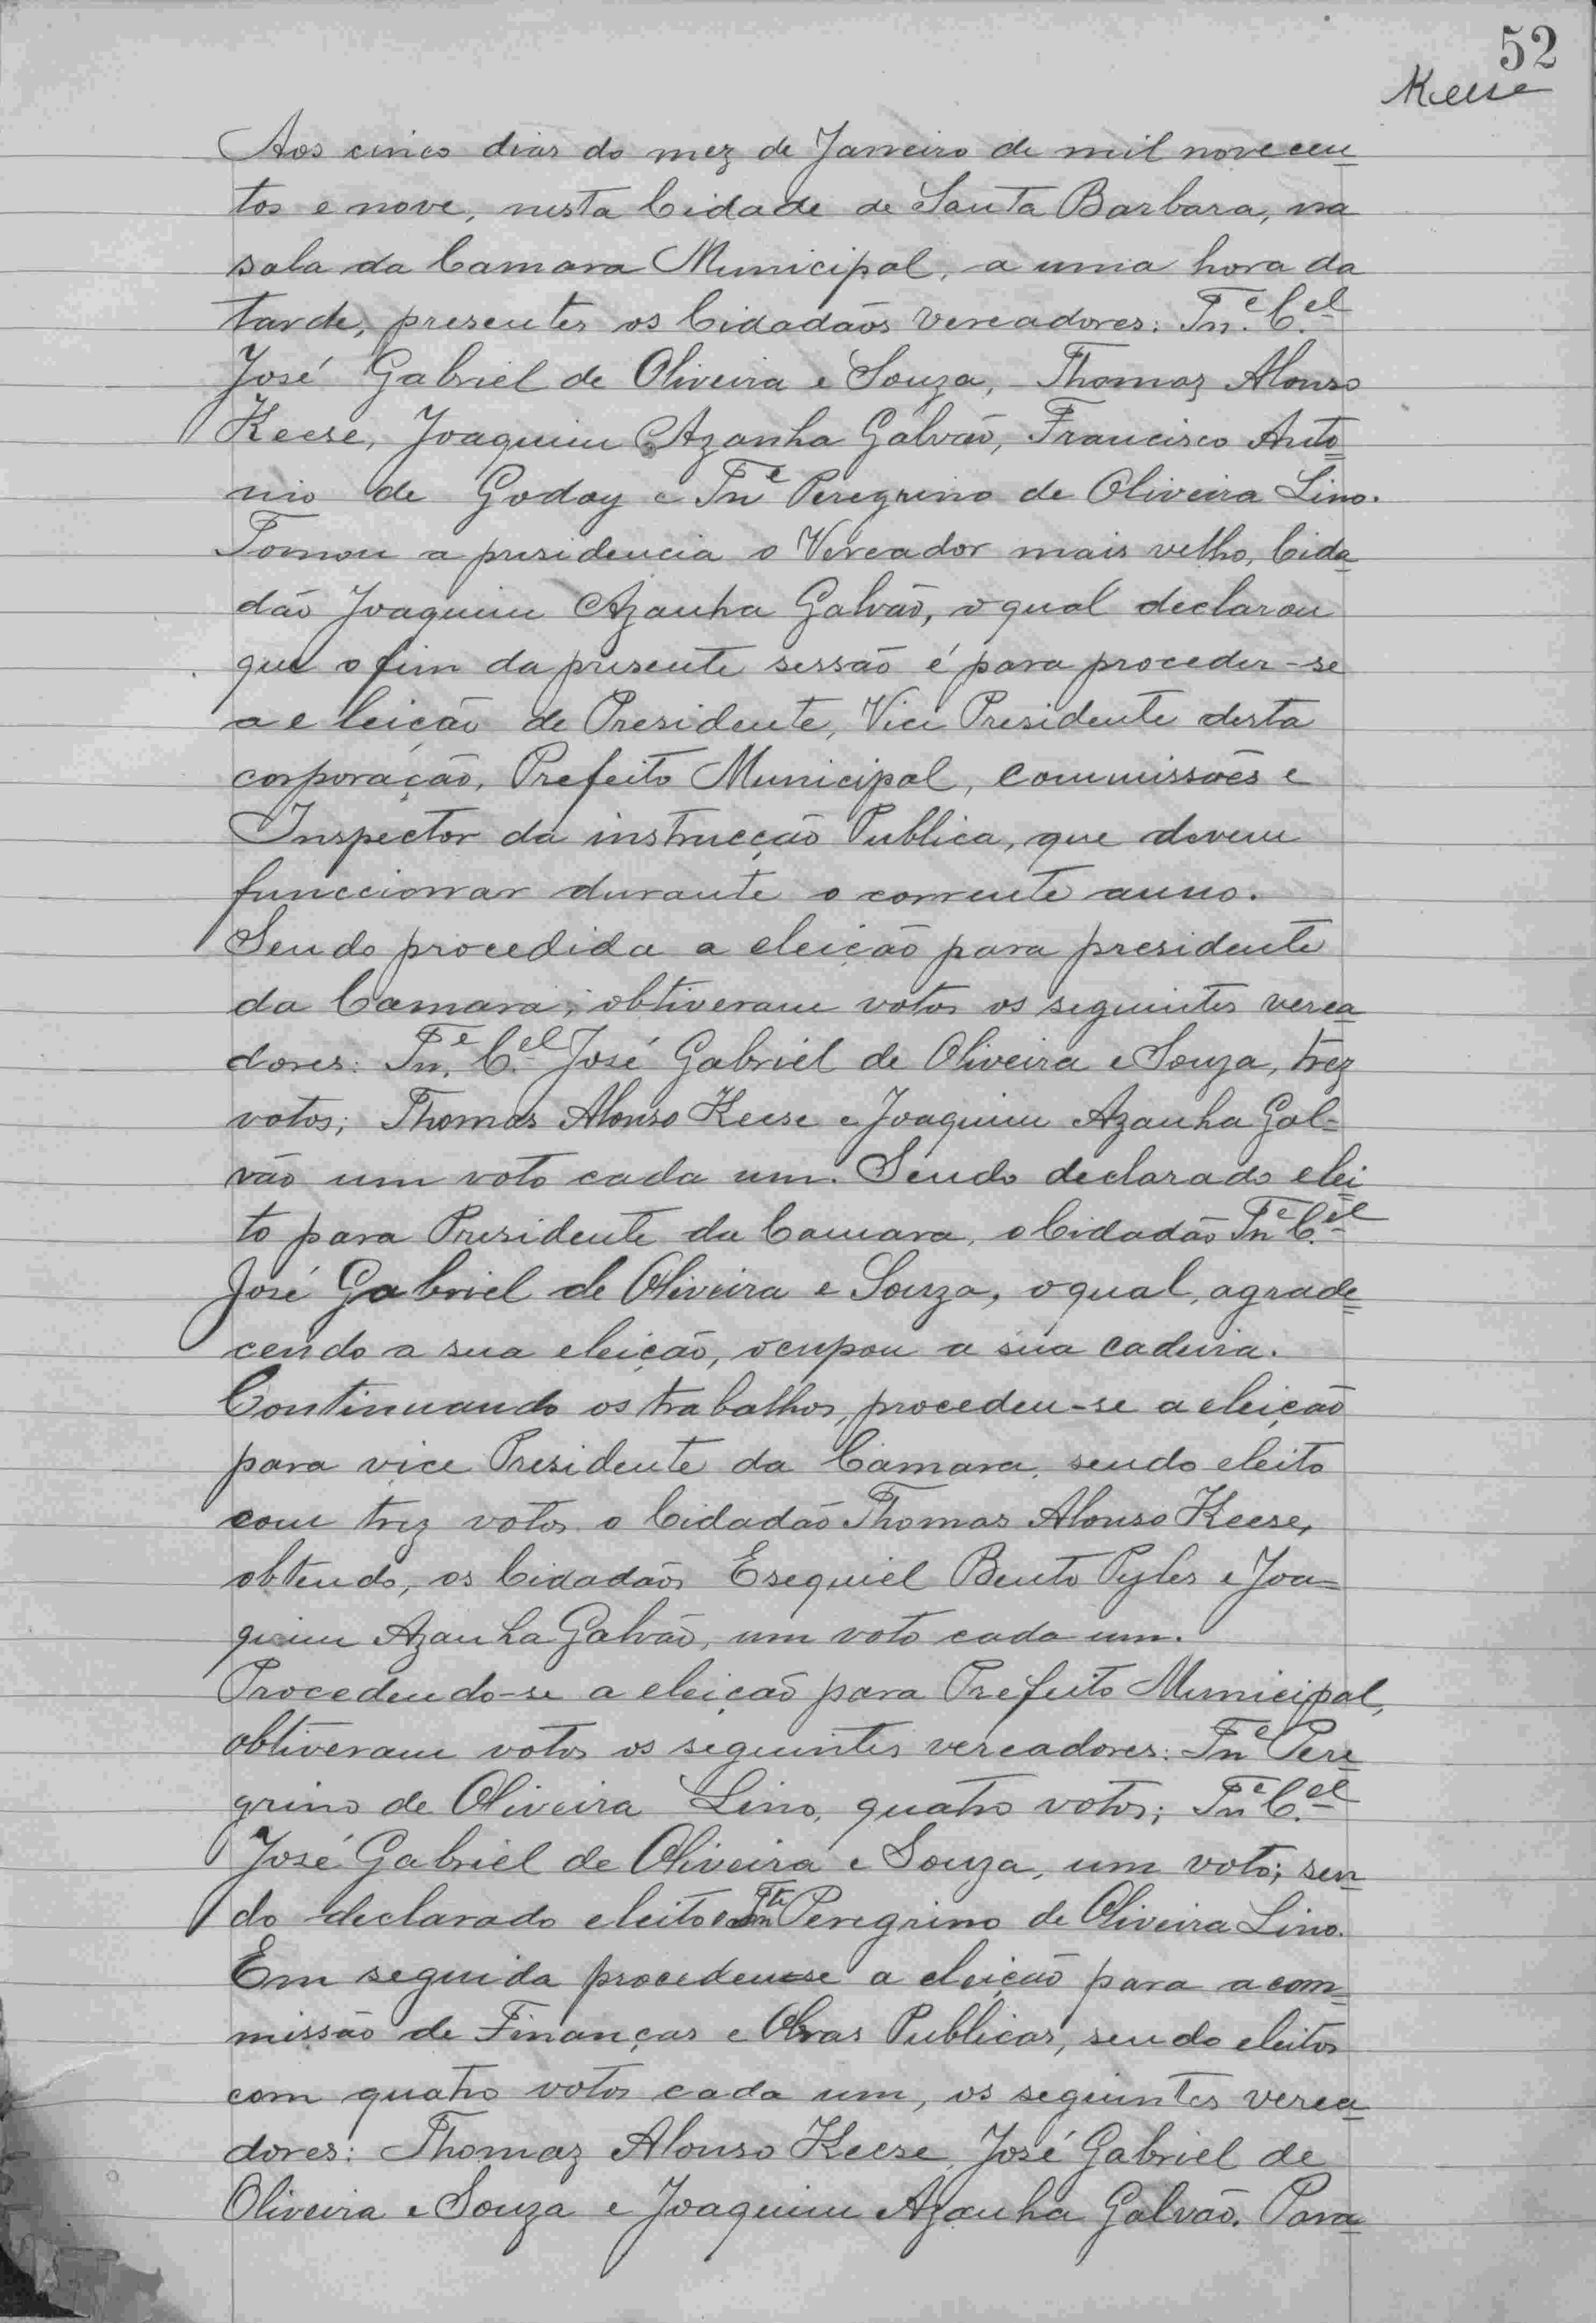 52
Keese
Aos cinco dias do mez de Janeiro de mil novecen
tos e nove, nesta Cidade de Santa Barbara, na
sala da Camara Municipal, a uma hora da
tarde, presentes os Cidadãos Vereadores: Tn.e C.el
José Gabriel de Oliveira e Souza, Thomaz Alonso
Keese, Joaquim Azanha Galvão, Francisco Anto
nio de Godoy e Tne Peregrino de Oliveira Lino.
Tomou a presidencia o Vereador mais velho, Cida
dão Joaquim Azanha Galvão, o qual declarou
que o fim da presente sessão é para proceder-se
a eleição de Presidente, Vice Presidente desta
corporação, Prefeito Municipal, commissões e
Inspector da instrucção Publica, que devem
funccionar durante o corrente anno.
Sendo procedida a eleição para presidente
da Camara, obtiveram votos os seguintes verea
dores: Tn.e C.el José Gabriel de Oliveira e Souza, trez
votos; Thomas Alonso Keese e Joaquim Azanha Gal=
vão um voto cada um. Sendo declarado elei
to para Presidente da Camara, o Cidadão Tne C.el
José Gabriel de Oliveira e Souza, o qual, agrade=
cendo a sua eleição, ocupou a sua cadeira.
Continuando os trabalhos, procedeu-se a eleição
para vice Presidente da Camara, sendo eleito
com trez votos o Cidadão Thomas Alonso Keese,
obtendo, os Cidadãos Esequiel Bento Pyles e Joa=
quim Azanha Galvão, um voto cada um.
Procedendo-se a eleição para Prefeito Municipal,
obtiveram votos os seguintes vereadores: Tne Pere
grino de Oliveira Lino, quatro votos; Tne C.el
José Gabriel de Oliveira e Souza, um voto; sen
do declarado eleito o Tnte Peregrino de Oliveira Lino.
Em seguida procedeu-se a eleição para a com=
missão de Finanças e Obras Publicas, sendo eleitos
com quatro votos cada um, os seguintes verea
dores: Thomaz Alonso Keese, José Gabriel de
Oliveira e Souza e Joaquim Azanha Galvão. Para